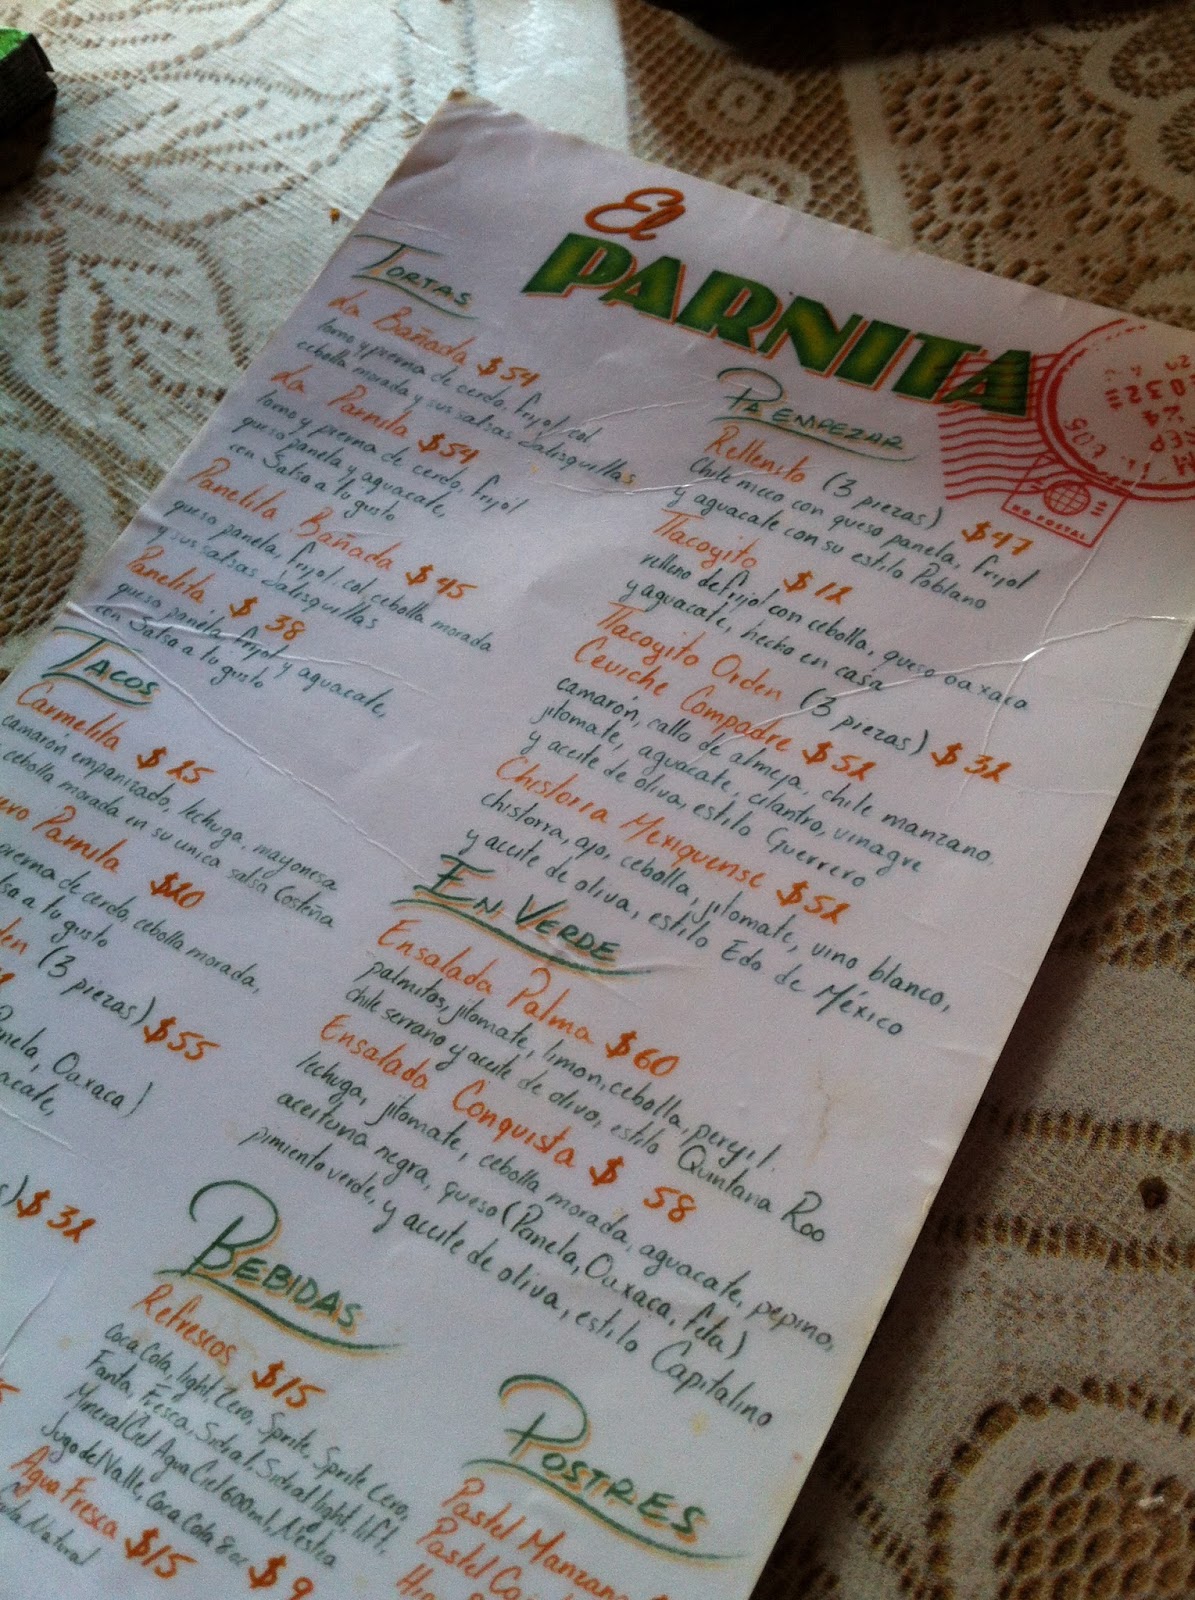 El
PARNITA
TORTAS
La Bañada $54
lomo y pierna de cerdo, frijol, col
cebolla morada y sus salsas Jalisquillas
La Parnita $54
lomo y pierna de cerdo, frijol
queso panela y aguacate,
con Salsa a tu gusto
Panelita Bañada $45
queso panela, frijol, col, cebolla morada
y sus salsas Jalisquillas
Panelita, $38
queso panela, frijol y aguacate,
con Salsa a tu gusto
TACOS
Carmelita $25
camarón empanizado, lechuga, mayonesa
cebolla morada en su unica salsa Costeña
Parnita $20
pierna de cerdo, cebolla morada,
a tu gusto
(3 piezas) $55
Oaxaca)
$32
PA EMPEZAR
Rellenito (3 piezas) $47
Chile meco con queso panela, frijol
y aguacate con su estilo Poblano
Tlacoyito $12
relleno de frijol con cebolla, queso oaxaca
y aguacate, hecho en casa
Tlacoyito Orden (3 piezas) $32
Ceviche Compadre $52
camarón, callo de almeja, chile manzano,
jitomate, aguacate, cilantro, vinagre
y aceite de oliva, estilo Guerrero
Chistorra Mexiquense $52
chistorra, ajo, cebolla, jitomate, vino blanco,
y aceite de oliva, estilo Edo de México
EN VERDE
Ensalada Palma $60
palmitos, jitomate, limon, cebolla, perejil.
chile serrano y aceite de olivo, estilo Quintana Roo
Ensalada Conquista $58
lechuga, jitomate, cebolla morada, aguacate, pepino,
aceituna negra, queso (Panela, Oaxaca, feta)
pimiento verde, y aceite de oliva, estilo Capitalino
BEBIDAS
Refrescos $15
Coca Cola, light, Zero, Sprite, Sprite Cero,
Fanta, Fresca, Sidral, Sidral light, lift,
Mineral Ciel Agua Ciel 600ml, Nestea
Jugo del Valle, Coca Cola 8oz $9
Agua Fresca $15
Natural
POSTRES
Pastel Manzana
Pastel
NO POSTAL